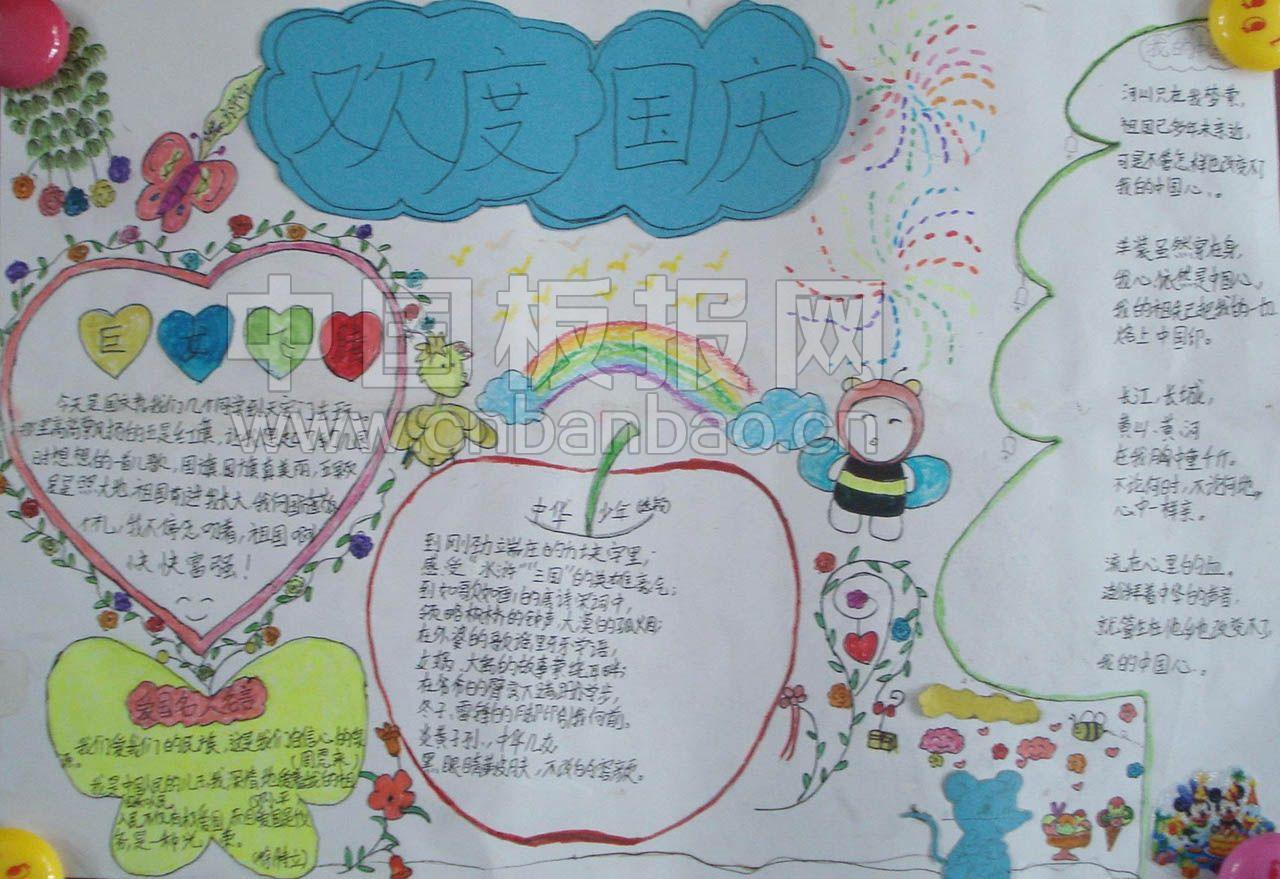 欢度国庆
我的
河山只在我梦萦,
祖国已多年未亲近,
可是不管怎样也改变不了
我的中国心。
洋装虽然穿在身,
我心依然是中国心。
我的祖先已把我的一切
烙上中国印。
长江、长城,
黄山、黄河
在我胸中重千斤。
不论何时,不论何地。
心中一样亲。
流在心里的血。
澎湃着中华的声音,
就算生在他乡也改变不了
我的中国心。
今天是国庆节我们几个同学到天安门去玩
那里高高飘扬的五星红旗,让我想起了
时想想的一首儿歌,国旗国旗真美丽,五颗
星星照大地,祖国前进我长大,我向国旗敬
个礼,我不停念叨着,祖国啊
快快富强!
中国板报网
www.cnbanbao.cn
中华少年
到刚劲端庄的方块字里,
感受“水浒”“三国”的英雄豪气;
到如歌如画的唐诗宋词中,
领略枫桥的钟声,大漠的孤烟;
在外婆的歌谣里牙牙学语,
女娲、大禹的故事萦绕耳畔;
在爷爷的臂弯大蹒跚学步,
冬子、雷锋的
炎黄子孙,中华儿女,
黑眼睛黄皮肤,不改的容颜。
爱国名人名言
我们爱我们的民族,这是我们自信心的泉
源。
(周恩来)
我是中国人民的儿子我深情地爱着我的祖
国和人民。
(邓小平)
人民不仅有权爱国,而且爱国是个义
务,是一种光荣。
(徐特立)